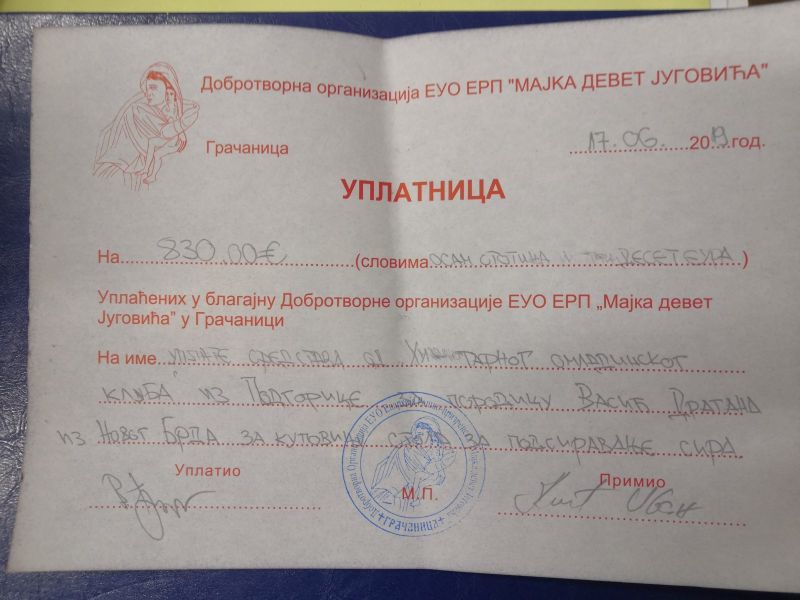 Добротворна организација ЕУО ЕРП "МАЈКА ДЕВЕТ ЈУГОВИЋА"
Грачаница
17.06. 2019 год.
УПЛАТНИЦА
На 830.00€, (словима ОСАМ СТОТИНА И ТРИДЕСЕТ ЕУРА)
Уплаћених у благајну Добротворне организације ЕУО ЕРП „Мајка девет
Југовића” у Грачаници
На име УПЛАТЕ СРЕДСТАВА ОД ОМЛАДИНСКОГ
КЛУБА ИЗ ПОДГОРИЦЕ ЗА ПОРОДИЦУ ВАСИЋ ДРАГАНА
ИЗ НОВОГ БРДА ЗА КУПОВИНУ ЗА ПОДСИРАВАЊЕ СИРА
Уплатио
М.П.
Примио
ГРАЧАНИЦА